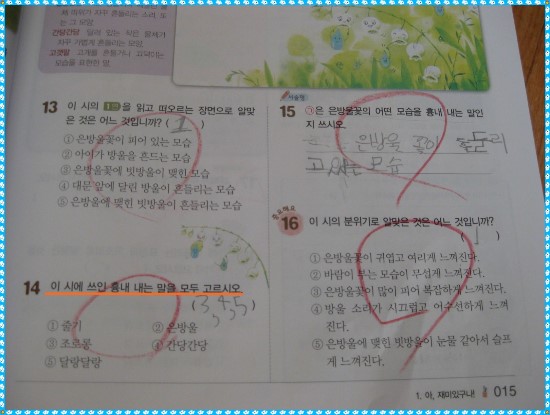 그 모양.
간당간당 달려 있는 작은 물체가
자꾸 가볍게 흔들리는 모양.
고갯짓 고개를 흔들거나 끄덕이는
모습을 표현한 말.
13 이 시의 1연을 읽고 떠오르는 장면으로 알맞
은 것은 어느 것입니까? ( 1 )
① 은방울꽃이 피어 있는 모습
② 아이가 방울을 흔드는 모습
③ 은방울꽃에 빗방울이 맺힌 모습
④ 대문 앞에 달린 방울이 흔들리는 모습
⑤ 은방울에 맺힌 빗방울이 흔들리는 모습
14 이 시에 쓰인 흉내 내는 말을 모두 고르시오.
(3,4,5)
① 줄기
② 은방울
③ 조로롱
④ 간당간당
⑤ 달랑달랑
서술형
15 ㉠은 은방울꽃의 어떤 모습을 흉내 내는 말인
지 쓰시오.
은방울 꽃이 흔들리
고 있는 모습
중요해요
16 이 시의 분위기로 알맞은 것은 어느 것입니까?
( 1 )
① 은방울꽃이 귀엽고 여리게 느껴진다.
② 바람이 부는 모습이 무섭게 느껴진다.
③ 은방울꽃이 많이 피어 복잡하게 느껴진다.
④ 방울 소리가 시끄럽고 어수선하게 느껴
진다.
⑤ 은방울꽃에 맺힌 빗방울이 눈물 같아서 슬프
게 느껴진다.
1. 아, 재미있구나! 015